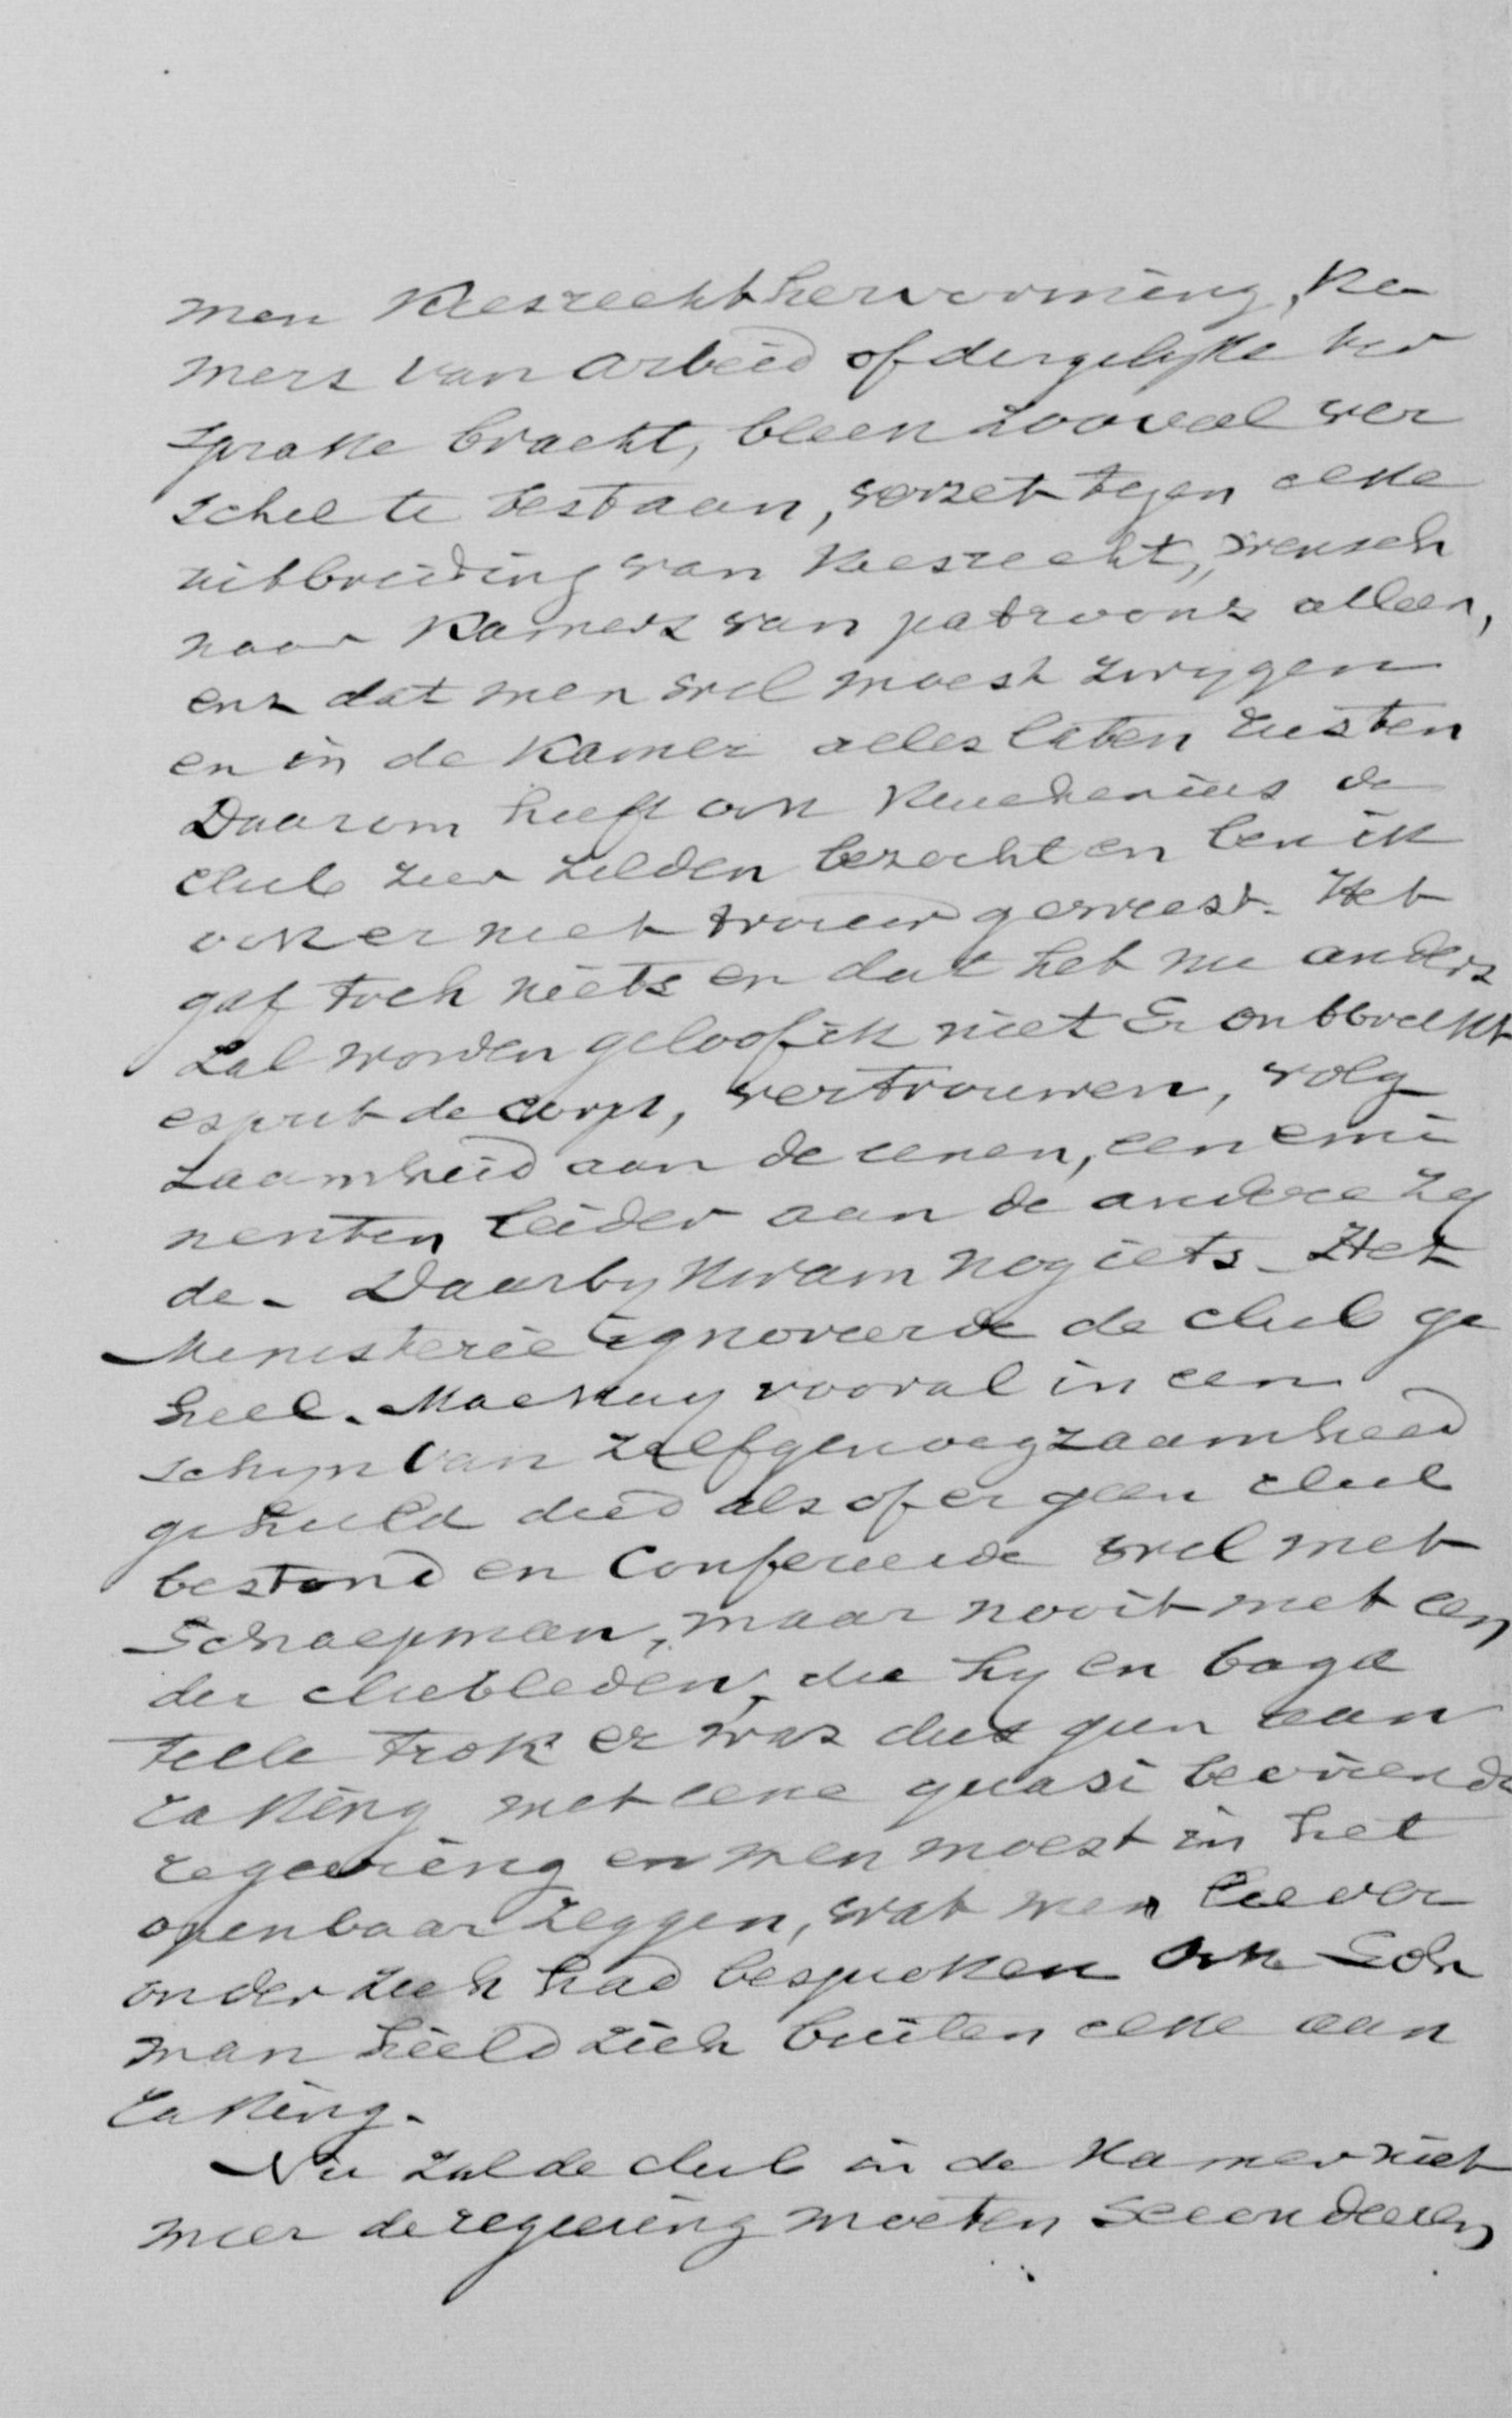 men Kiesrechthervorming, Ka
mers van arbeid of dergelijke ter
sprake bracht, bleek zooveel ver
schil te bestaan, verzet tegen elke
uitbreiding van Kiesrecht, wensch
naar Kamers van patroons alleen,
enz dat men wel moest zwygen
en in de Kamer alles laten rusten
Daarom heeft ook Keuchenius de
club zeer zelden bezocht en ben ik
ook er niet trouw geweest. Het
gaf toch niets en dat het nu anders
zal worden geloof ik niet Er ontbreekt
esprit de corps, vertrouwen, volg
zaamheid aan de eenen, een emi
nenten leider aan de andere zy
de. Daarby kwam nog iets. Het
Ministerie ignoreerde de club ge
heel. Mackay vooral in een
schyn van zelfgenoegzaamheid
gehuld deed alsof er geen club
bestond en Confereerde wel met
Schaepman, maar nooit met een
der clubleden, die hy en baga
telle trok er was dus geen aan
raking met eene quasi bevriende
regeering en men moest in het
openbaar zeggen, wat men liever
onder zich had besproken ook Loh
man hield zich buiten elke aan
raking.
Nu zal de club in de Kamer niet
meer de regeering moeten secondeeren